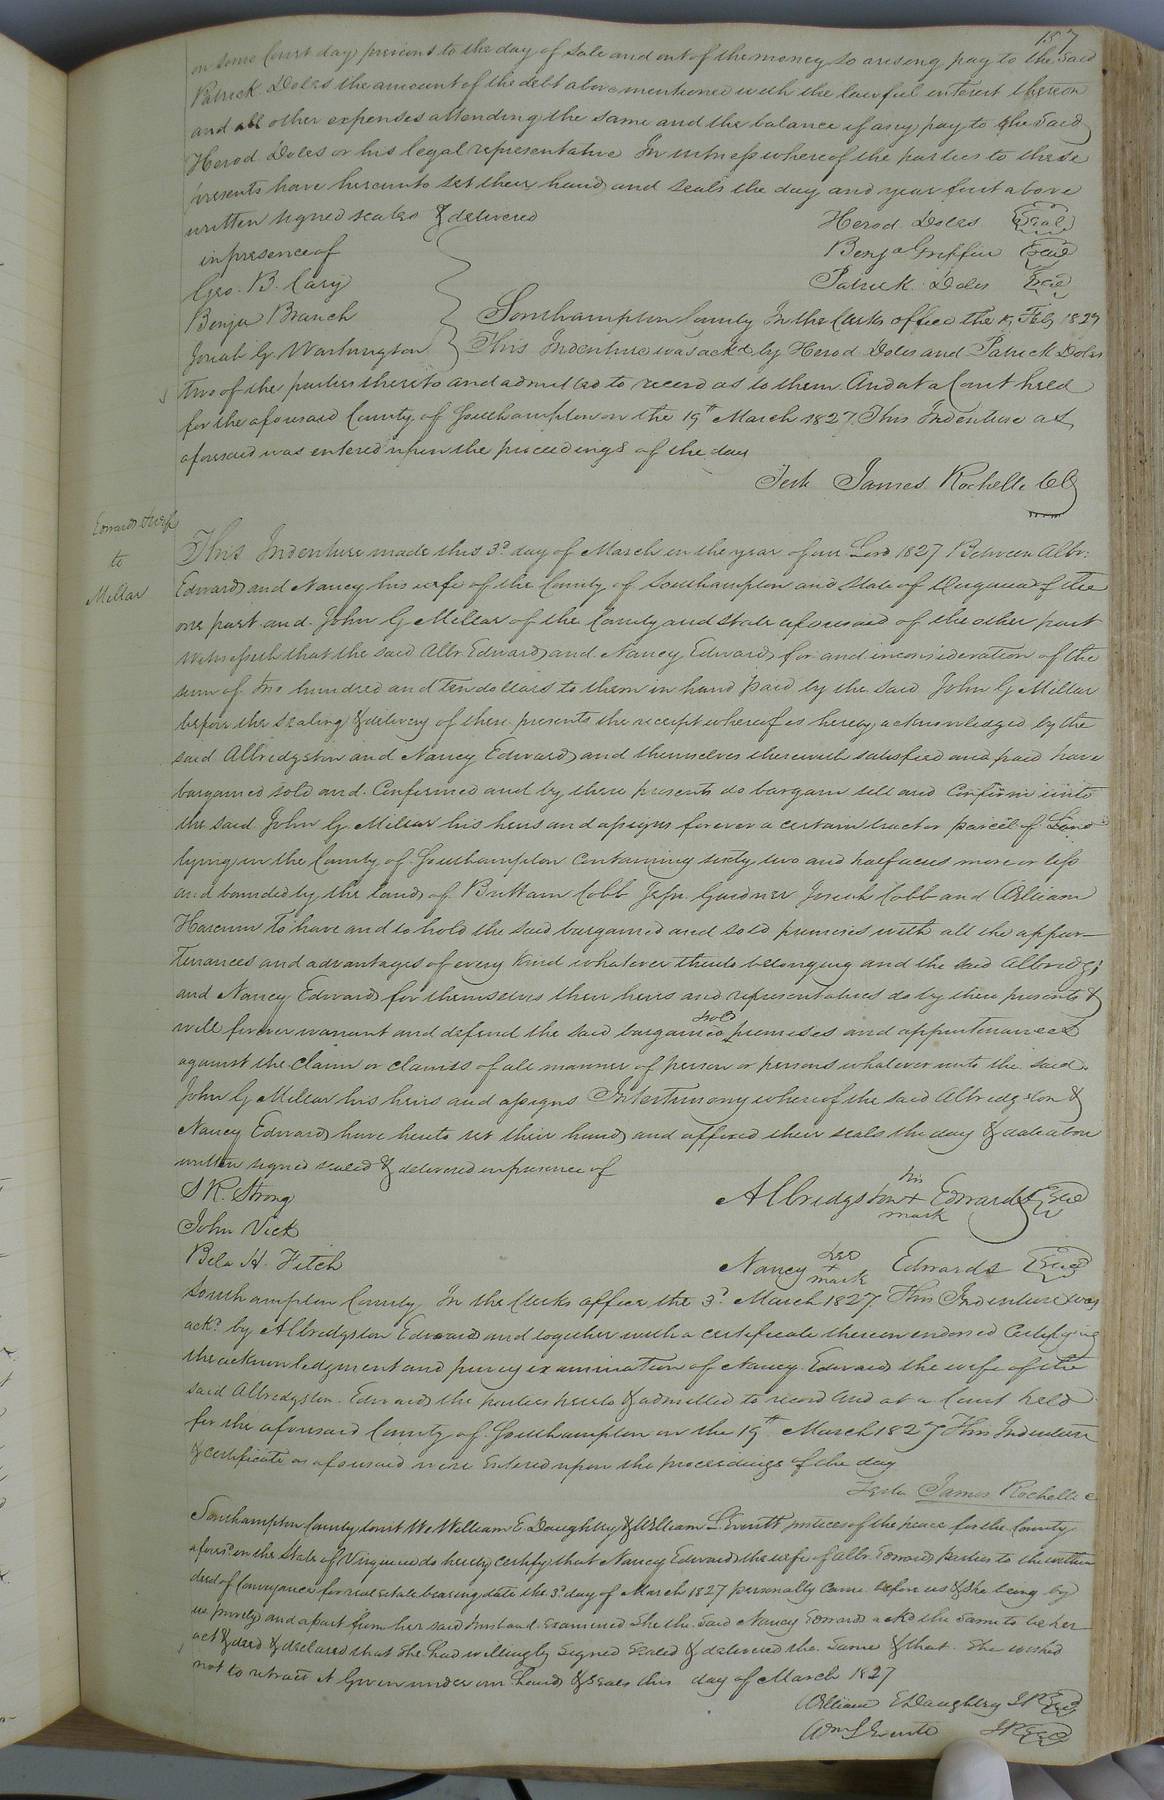 157
on some Court day previous to the day of sale and out of the money so arising pay to the said
Patrick Doles the amount of the debt above mentioned with the lawful interest thereon
and all other expenses attending the same and the balance if any pay to the said
Herod Doles or his legal representative In witness whereof the parties to these
presents have hereunto set their hands and seals the day and year first above
written signed sealed & delivered
in presence of
Geo. B. Cary
Benja Branch
Josiah G. Washington
Herod Doles Seal
Benja Griffin Seal
Patrick Doles Seal
Southampton County In the Clerks office the Feb 1827
This Indenture was ackd by Herod Doles and Patrick Doles
two of the parties thereto and admitted to record as to them And at a Court held
for the aforesaid County of Southampton on the 19th March 1827 This Indenture as
aforesaid was entered upon the proceedings of the day
Teste James Rochelle CC
Edwards & wife
to
Millar
This Indenture made this 3d day of March in the year of our Lord 1827 Between Albr:
Edwards and Nancy his wife of the County of Southampton and State of Virginia of the
one part and John G Millar of the County and State aforesaid of the other part
Witnesseth that the said Albr. Edwards and Nancy Edwards for and in consideration of the
sum of two hundred and ten dollars to them in hand paid by the said John G Millar
before the sealing & delivery of these presents the receipt whereof is hereby acknowledged by the
said Albridgston and Nancy Edwards and themselves therewith satisfied and paid have
bargained sold and Confirmed and by these presents do bargain sell and Confirm unto
the said John G Millar his heirs and assigns forever a certain tract or parcel of Land
lying in the County of Southampton Containing sixty two and half acres more or less
and bounded by the lands of Brittain Cobb Jesse Gardner Josiah Cobb and William
Harcum To have and to hold the said bargained and sold premises with all the appur-
tenances and advantages of every kind whatever thereto belonging and the said Albridgs
and Nancy Edwards for themselves their heirs and representatives do by these presents &
will forever warrant and defend the said bargained sold premises and appurtenances
against the claim or claims of all manner of person or persons whatever unto the said
John G Millar his heirs and assigns In testimony whereof the said Albridgston &
Nancy Edwards have hereto set their hands and affixed their seals the day & date above
written signed sealed & delivered in presence of
S R. Strong
John Vick
Bela H. Fitch
Albridgston his + mark Edwards Seal
Nancy her + mark Edwards Seal
Southampton County In the Clerks office the 3d March 1827. This Indenture was
ackd by Albridgston Edwards and together with a certificate thereon endorsed Certifying
the acknowledgment and privy examination of Nancy Edwards the wife of the
said Albridgston Edwards the parties hereto & admitted to record And at a Court held
for the aforesaid County of Southampton on the 19th March 1827 This Indenture
& certificate as aforesaid were Entered upon the proceedings of the day
Teste James Rochelle C
Southampton County towit We William E Daughtry & William L Everitt justices of the peace for the County
aforesd in the State of Virginia do hereby certify that Nancy Edwards the wife of Albr. Edwards parties to the within
deed of Conveyance for real estate bearing date the 3d day of March 1827 personally came before us & she being by
us privily and apart from her said husband Examined She the said Nancy Edwards ackd the same to be her
act & deed & declared that She had willingly Signed Sealed & delivered the same & that She wished
not to retract it Given under our hands & seals this day of March 1827
William E Daughtry JP Seal
Wm L Everitt JP Seal